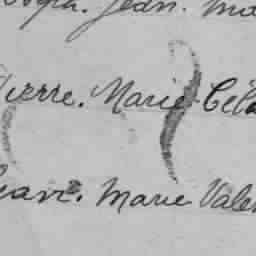 Jean. Ma
Pierre. Marie Cél
Jean. Marie Vale